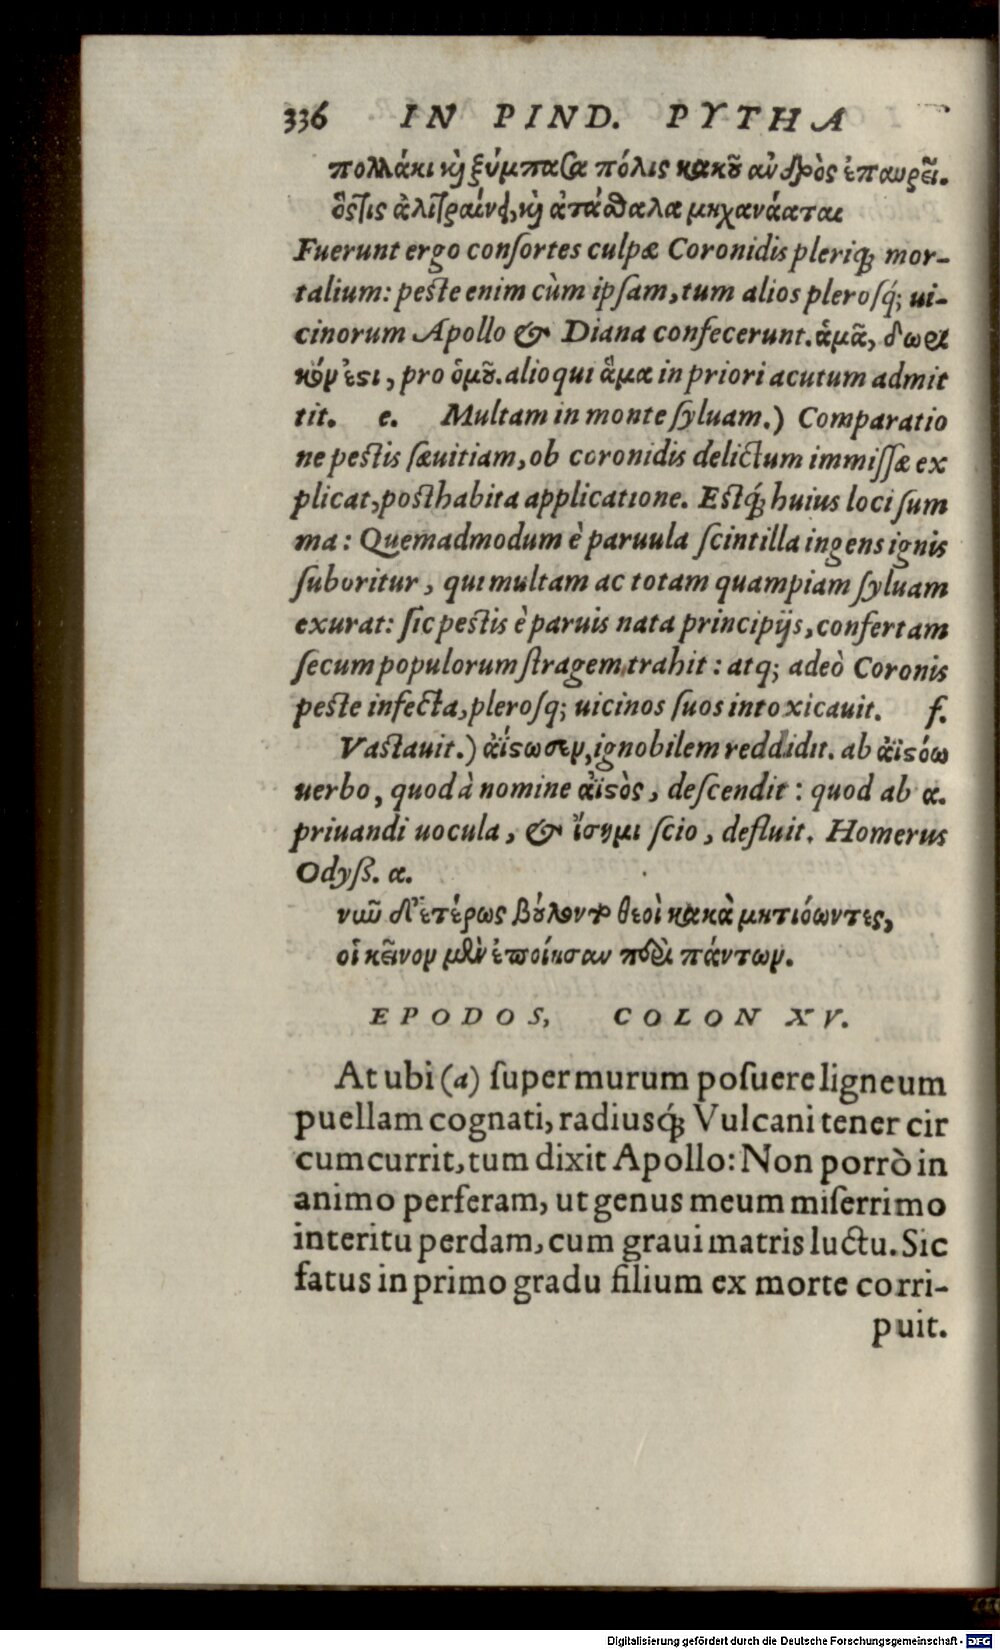 336 IN PIND. PYTHA
πολλάκι καὶ ξύμπασα πόλις κακοῦ ἀνδρὸς ἐπαυρεῖ.
ὅςτις ἀλιτραίνει, καὶ ἀτάσθαλα μηχανάαται
Fuerunt ergo conſortes culpæ Coronidis pleriqꝫ mor-
talium: peſte enim cùm ipſam, tum alios pleroſq́; ui-
cinorum Apollo & Diana confecerunt. ἁμᾶ, δωρι
κόν ἐστι, pro ὁμοῦ. alioqui ἅμα in priori acutum admit
tit. e. Multam in monte ſyluam.) Comparatio
ne peſtis ſæuitiam, ob coronidis delictum immiſſæ ex
plicat, poſthabita applicatione. Eſtq́ꝫ huius loci ſum
ma: Quemadmodum è paruula ſcintilla ingens ignis
ſuboritur, qui multam ac totam quampiam ſyluam
exurat: ſic peſtis è paruis nata principijs, confertam
ſecum populorum ſtragem trahit: atq; adeò Coronis
peſte infecta, pleroſq; uicinos ſuos intoxicauit. f.
Vaſtauit.) ἀΐστωσεν, ignobilem reddidit. ab ἀϊστόω
uerbo, quod à nomine ἀϊστὸς, deſcendit: quod ab α.
priuandi uocula, & ἴσημι ſcio, defluit. Homerus
Odyß. α.
νῦν δ' ἑτέρως βούλοντο θεοὶ κακὰ μητιόωντες,
οἳ κεῖνον μὲν ἄϊστον ἐποίησαν περὶ πάντων.
EPODOS, COLON XV.
At ubi (a) ſuper murum poſuere ligneum
puellam cognati, radiusq́ꝫ Vulcani tener cir
cumcurrit, tum dixit Apollo: Non porrò in
animo perferam, ut genus meum miſerrimo
interitu perdam, cum graui matris luctu. Sic
fatus in primo gradu filium ex morte corri-
puit.
Digitalisierung gefördert durch die Deutsche Forschungsgemeinschaft - DFG